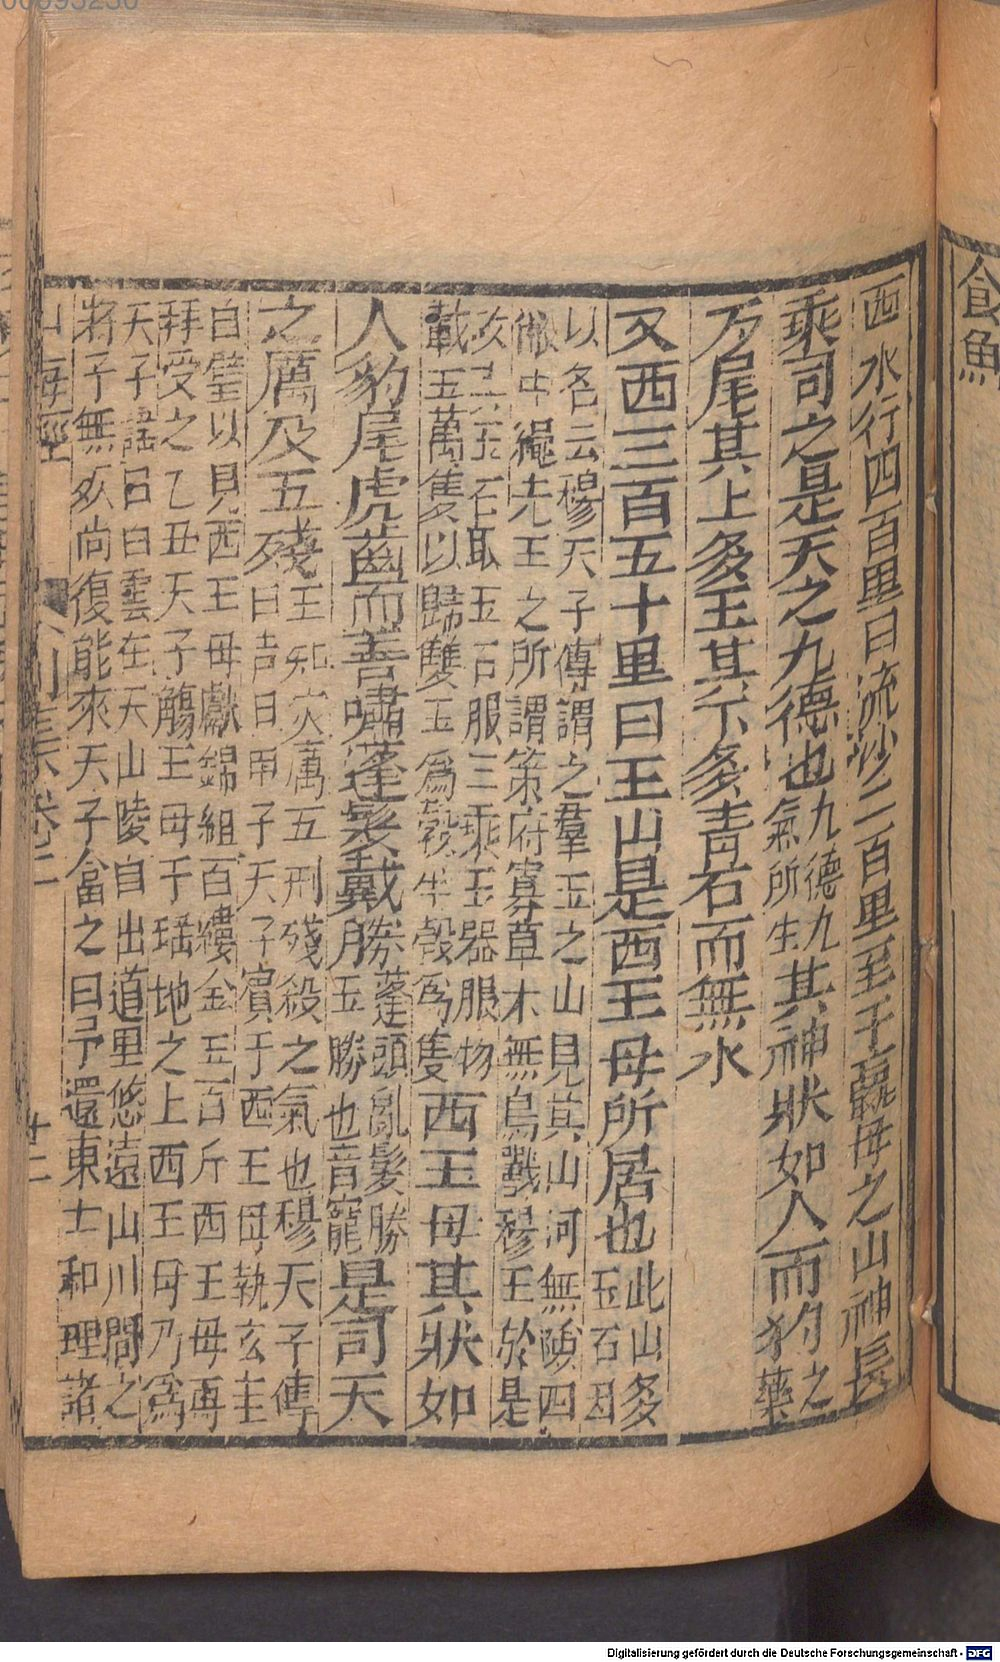 食魚
西水行四百里曰流沙二百里至于蠃母之山神長
乘司之是天之九德也九德九氣所生其神狀如人而犳之藥
尾其上多玉其下多青石而無水
又西三百五十里曰王山是西王母所居也此山多玉石因
以名云穆天子傳謂之羣玉之山見其山河無險四
徹中繩先王之所謂策府寡草木無鳥獸穆王於是
攻其玉石取玉石服三乘玉器服物
載五萬隻以歸雙玉為瑴半瑴為隻西王母其狀如
人豹尾虎齒而善嘯蓬髮戴勝蓬頭亂髮勝玉勝也音寵是司天
之厲及五殘主知災厲五刑殘殺之氣也穆天子傳
曰吉日甲子天子賓于西王母執玄圭
白璧以見西王母獻錦組百縷金玉百斤西王母再
拜受之乙丑天子觴王母于瑤池之上西王母乃為
天子謠曰白雲在天山陵自出道里悠遠山川間之
將子無死尚復能來天子答之曰予還東土和理諸
山海經 卷二 廿二
Digitalisierung gefördert durch die Deutsche Forschungsgemeinschaft - DFG